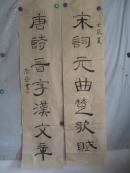 宋詞元曲楚歌賦
唐詩晉字漢文章